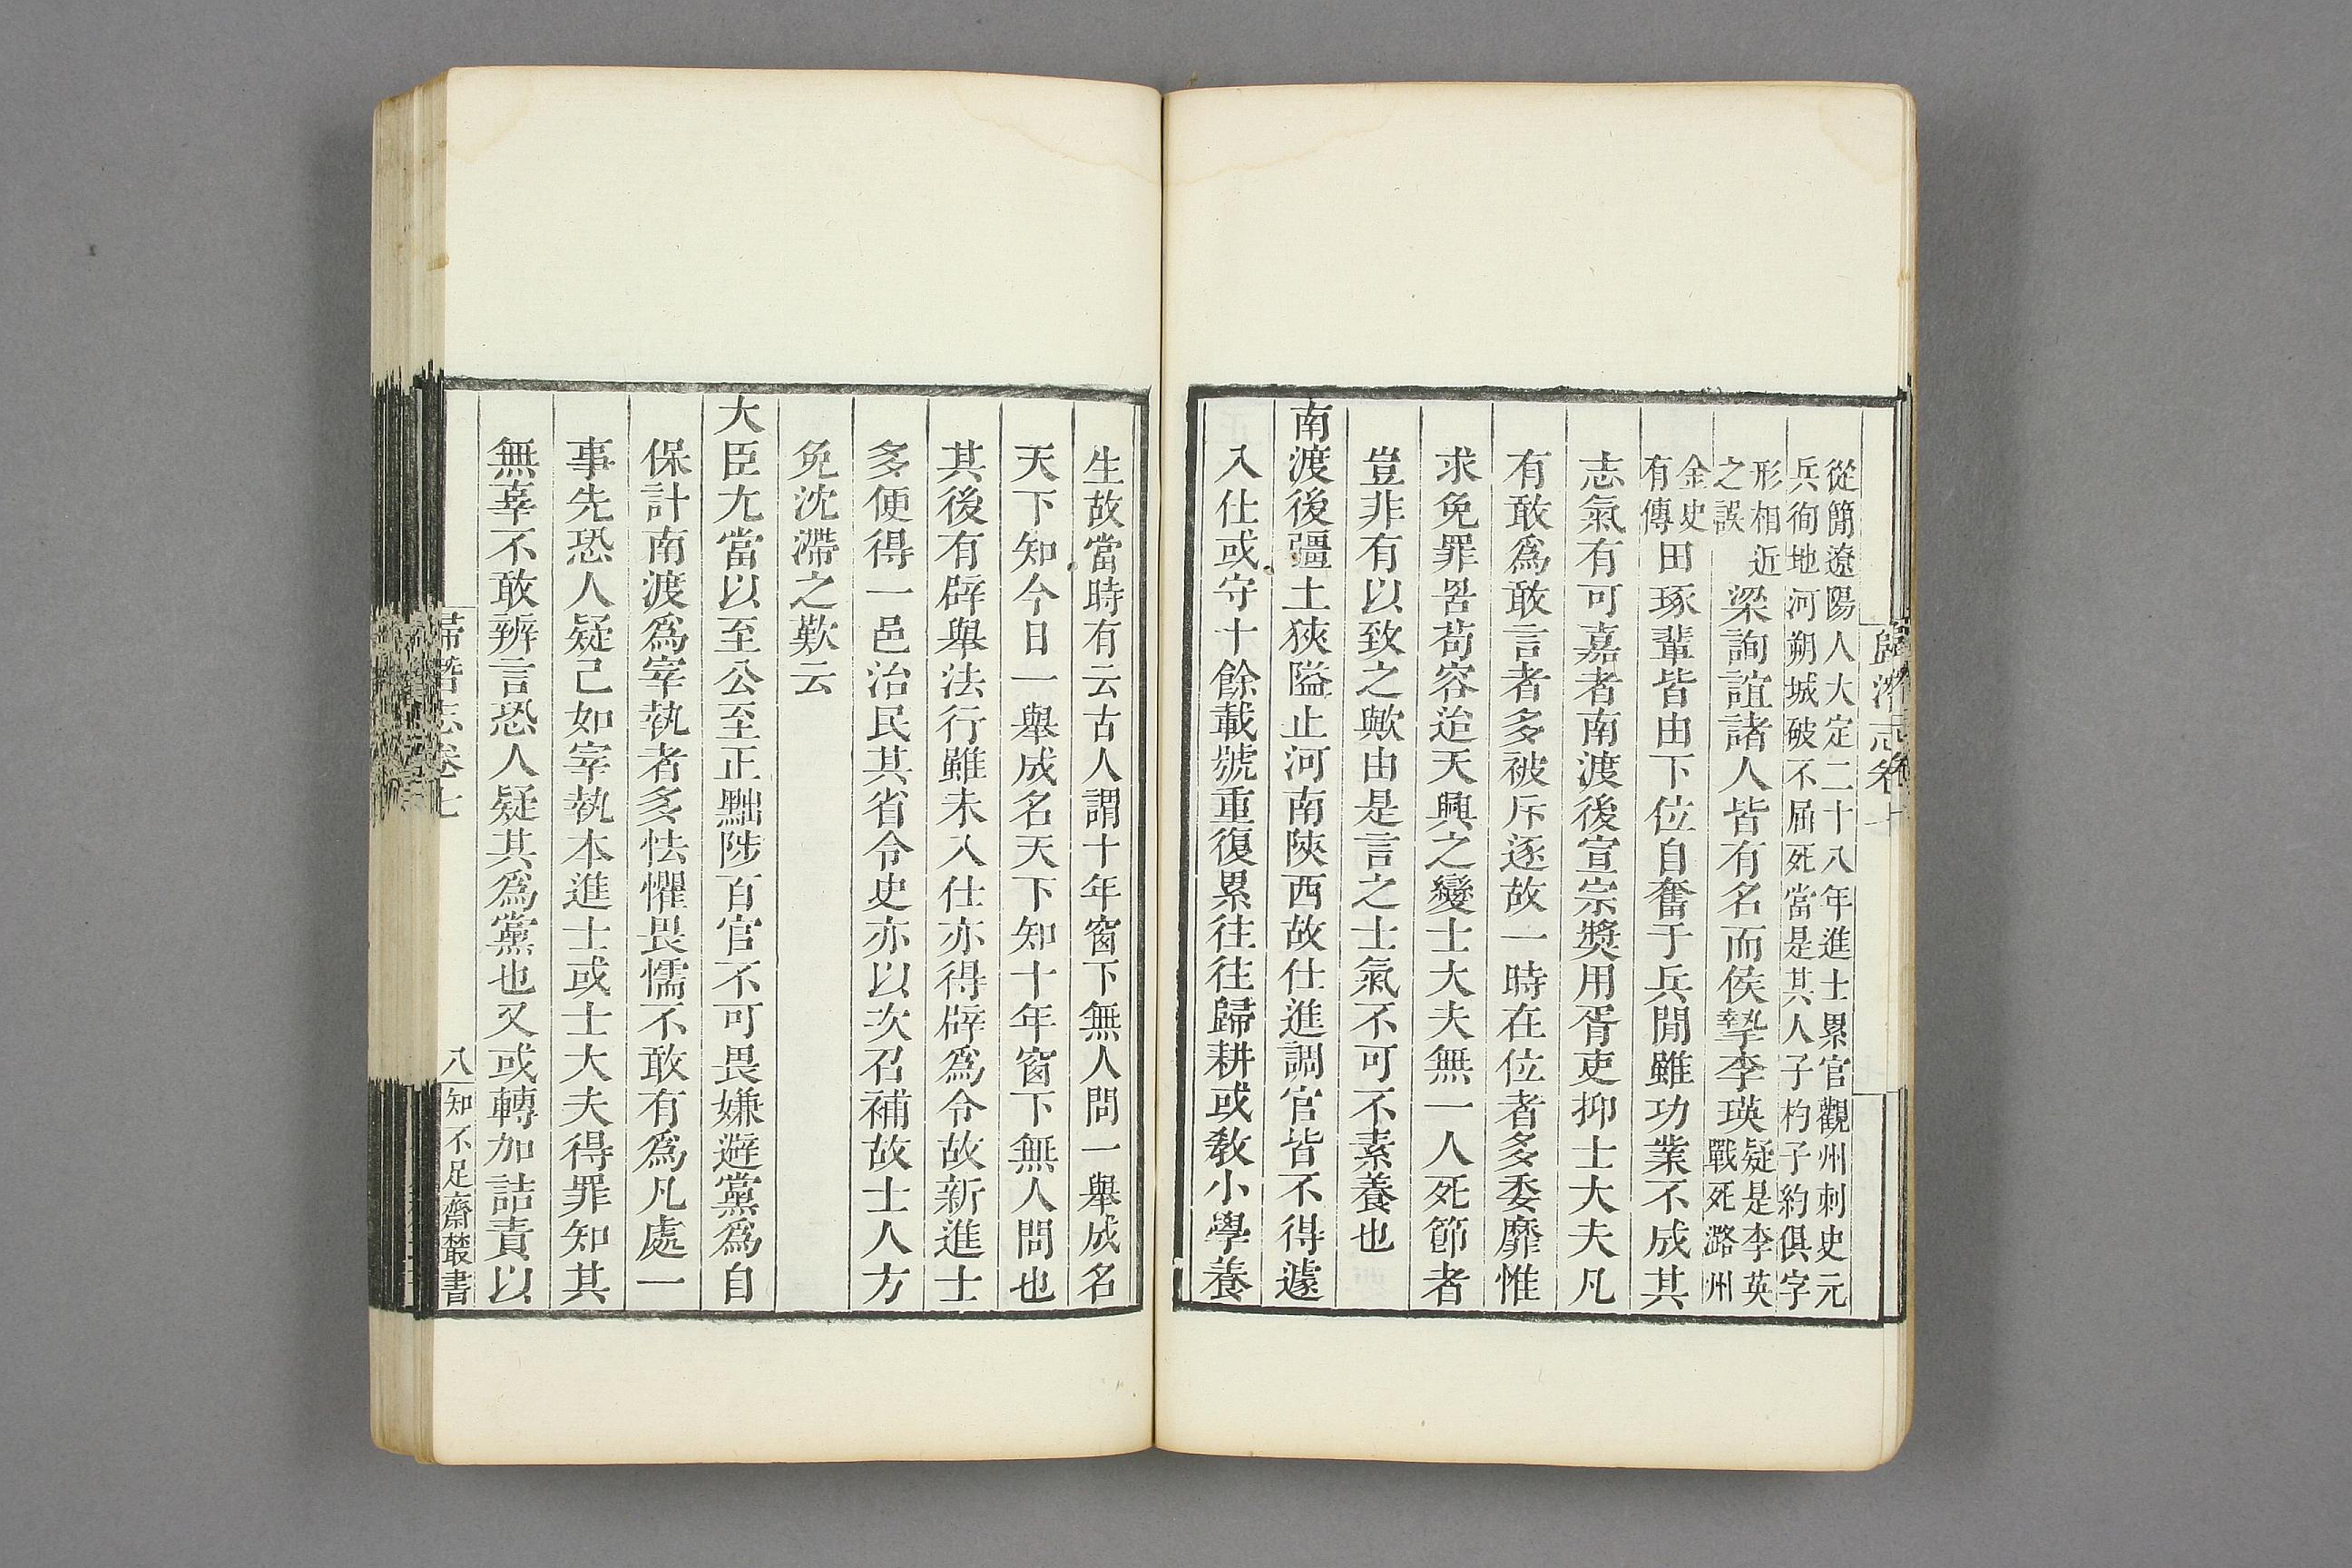 歸潛志卷七
從簡遼陽人大定二十八年進士累官觀州刺史元
兵徇地河朔城破不屈死當是其人子杓子約俱字
形相近
之誤
梁詢誼諸人皆有名而侯摯李瑛
疑是李英
戰死潞州
金史
有傳
田琢輩皆由下位自奮于兵閒雖功業不成其
志氣有可嘉者南渡後宣宗奬用胥吏抑士大夫凡
有敢爲敢言者多被斥逐故一時在位者多委靡惟
求免罪罟苟容迨天興之變士大夫無一人死節者
豈非有以致之歟由是言之士氣不可不素養也
南渡後疆土狹隘止河南陝西故仕進調官皆不得遽
入仕或守十餘載號重復累往往歸耕或敎小學養
生故當時有云古人謂十年窗下無人問一舉成名
天下知今日一舉成名天下知十年窗下無人問也
其後有辟舉法行雖未入仕亦得辟爲令故新進士
多便得一邑治民其省令史亦以次召補故士人方
免沈滯之歎云
大臣尢當以至公至正黜陟百官不可畏嫌避黨爲自
保計南渡爲宰執者多怯懼畏懦不敢有爲凡處一
事先恐人疑己如宰執本進士或士大夫得罪知其
無辜不敢辨言恐人疑其爲黨也又或轉加詰責以
歸潛志卷七
八
知不足齋叢書